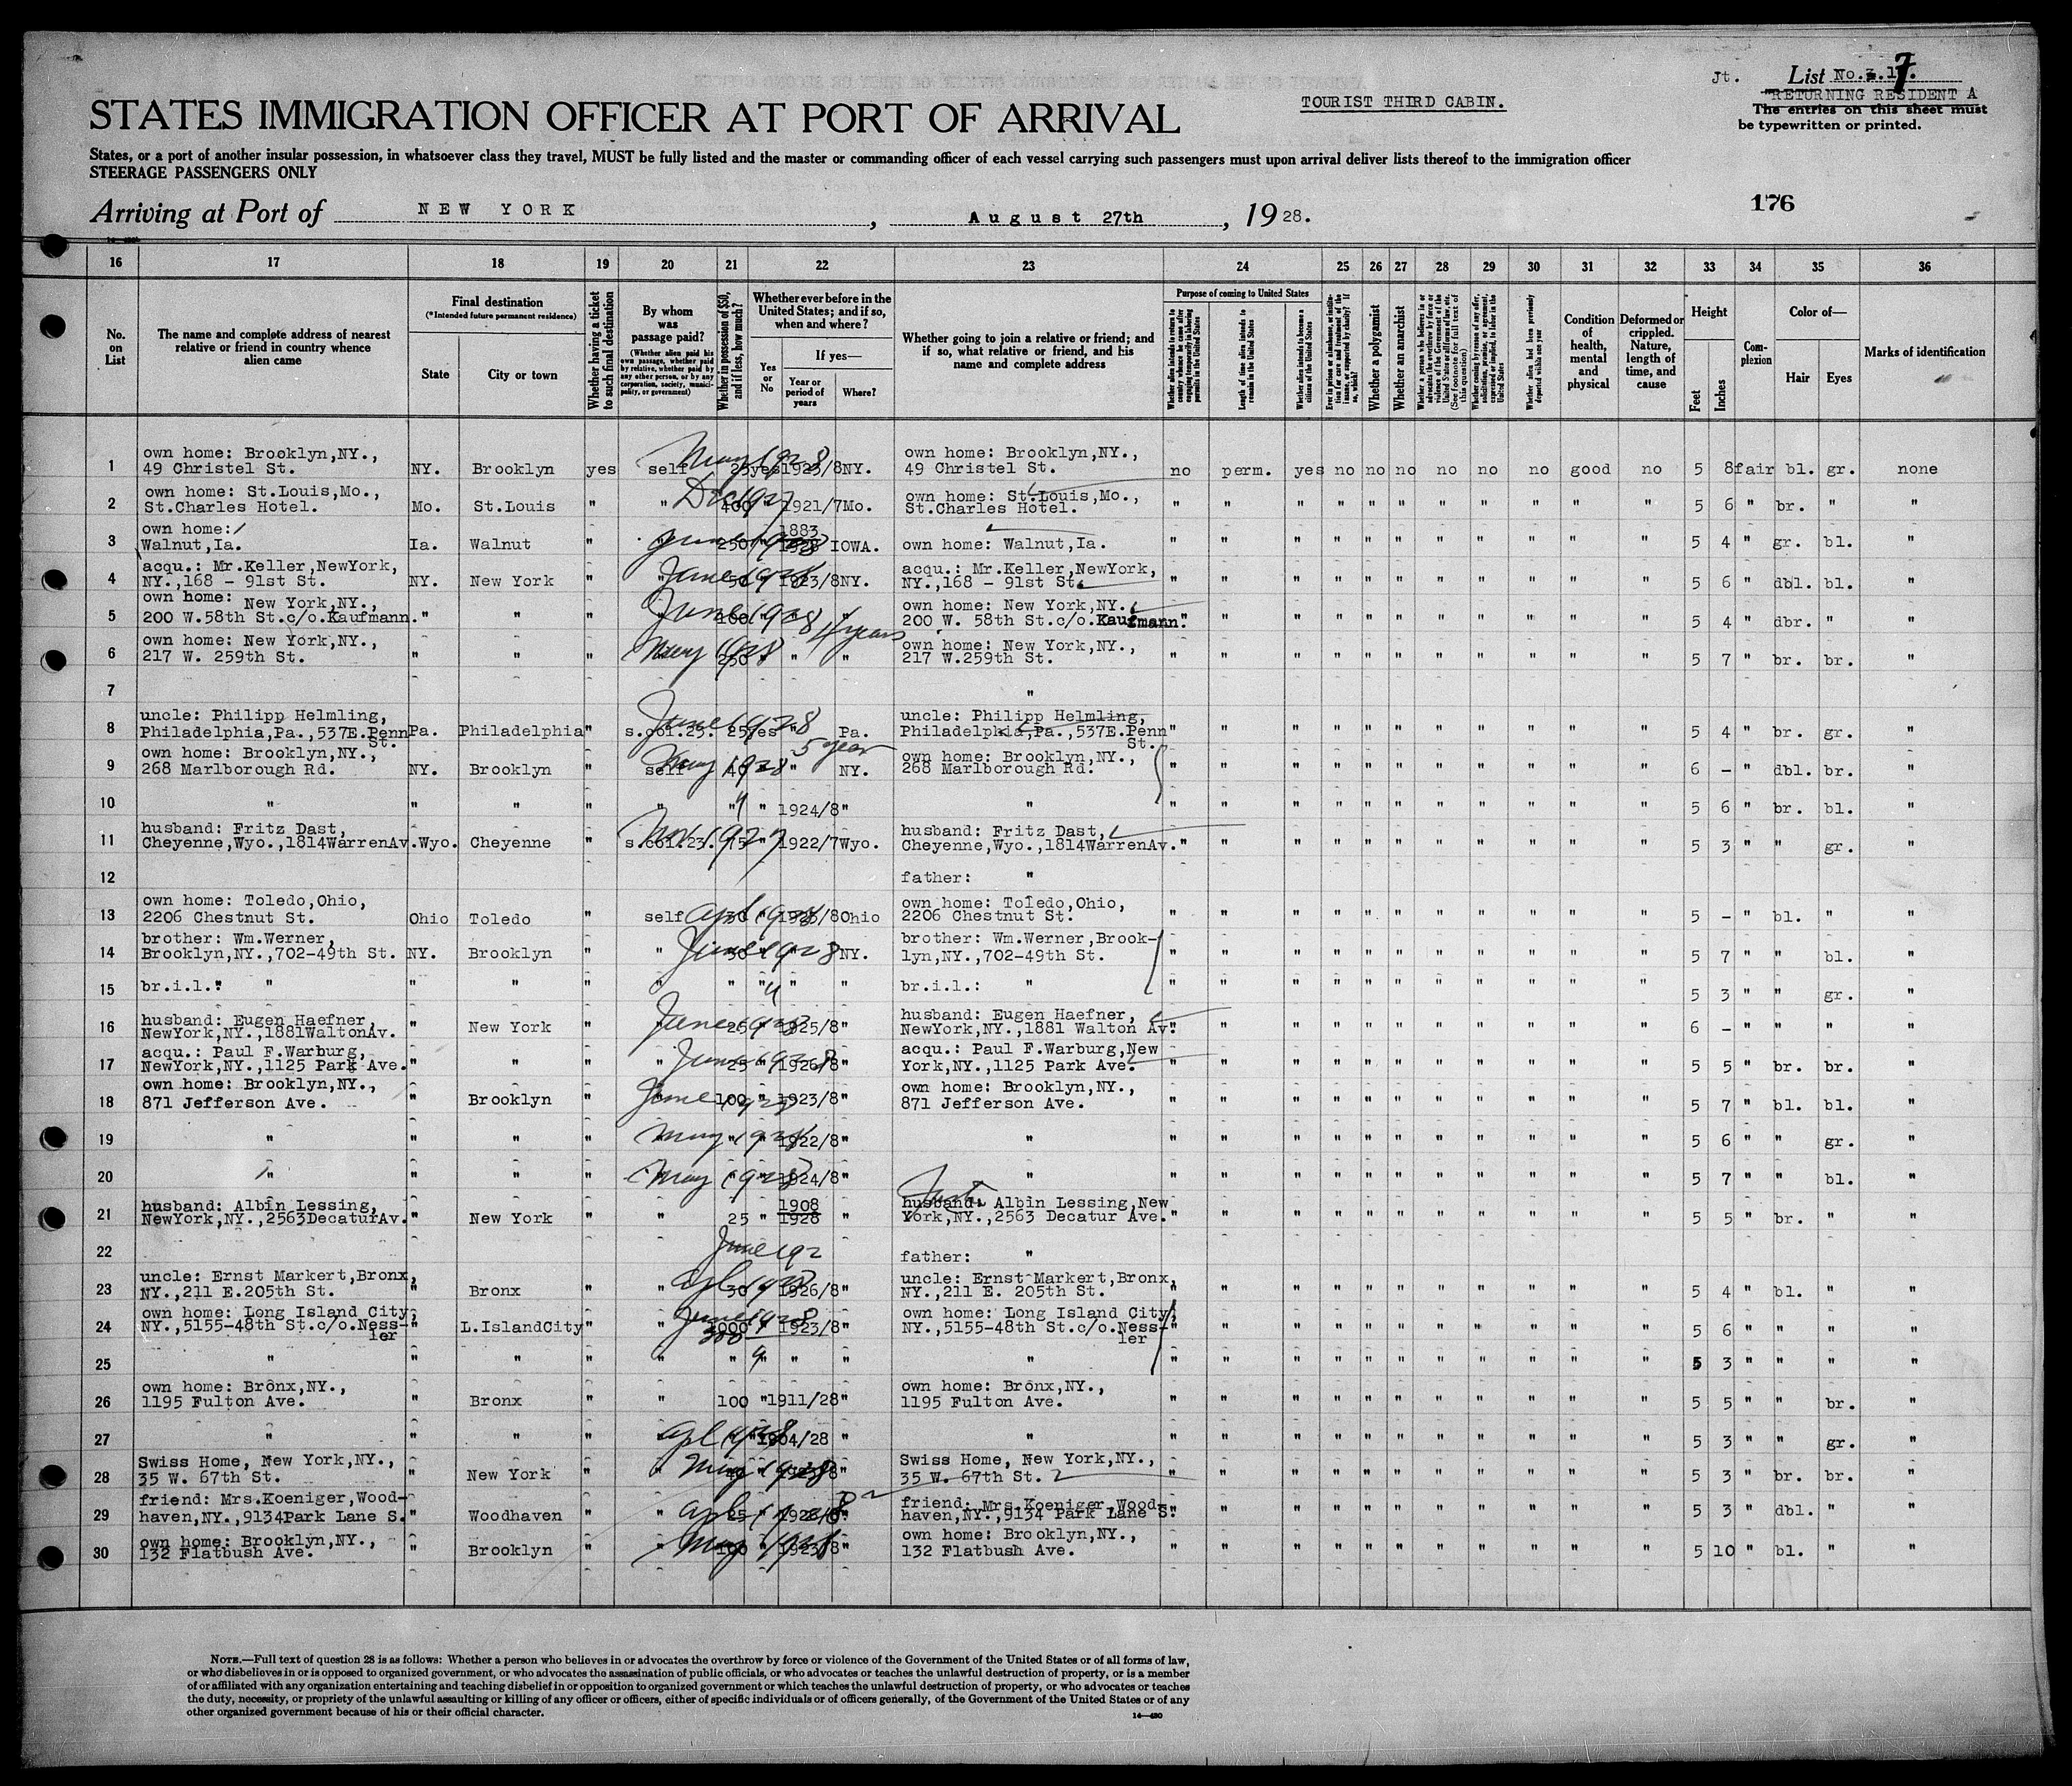 Jt. List No. 7
TOURIST THIRD CABIN.
RETURNING RESIDENT A
The entries on this sheet must
be typewritten or printed.
STATES IMMIGRATION OFFICER AT PORT OF ARRIVAL
States, or a port of another insular possession, in whatsoever class they travel, MUST be fully listed and the master or commanding officer of each vessel carrying such passengers must upon arrival deliver lists thereof to the immigration officer
STEERAGE PASSENGERS ONLY
176
Arriving at Port of NEW YORK, August 27th, 1928.
16 17 18 19 20 21 22 23 24 25 26 27 28 29 30 31 32 33 34 35 36
No. on List
The name and complete address of nearest relative or friend in country whence alien came
Final destination
(*Intended future permanent residence)
State
City or town
Whether having a ticket to such final destination
By whom was passage paid?
(Whether alien paid his own passage, whether paid by relative, whether paid by any other person, or by any corporation, society, municipality, or government)
Whether in possession of $50, and if less, how much?
Whether ever before in the United States; and if so, when and where?
Yes or No
If yes—
Year or period of years
Where?
Whether going to join a relative or friend; and if so, what relative or friend, and his name and complete address
Purpose of coming to United States
Length of time alien intends to remain in the United States
Whether alien intends to become a citizen of the United States
Whether a polygamist
Whether an anarchist
Condition of health, mental and physical
Deformed or crippled. Nature, length of time, and cause
Height
Feet
Inches
Complexion
Color of—
Hair
Eyes
Marks of identification
own home: Brooklyn,NY., own home: Brooklyn,NY.,
1 49 Christel St. NY. Brooklyn yes self 25 yes 1923/8 NY. 49 Christel St. no perm. yes no no no no no no good no 5 8 fair bl. gr. none
May 1928
own home: St.Louis,Mo., own home: St.Louis,Mo.,
2 St.Charles Hotel. Mo. St.Louis " " 400 1921/7 Mo. St.Charles Hotel. " " " " " " " " " " " 5 6 " br. " "
Dec 1927
own home: 1883
3 Walnut,Ia. Ia. Walnut " 250 1928 IOWA. own home: Walnut,Ia. " " " " " " " " " " " 5 4 " gr. bl. "
June 1928
acqu.: Mr.Keller,NewYork, acqu.: Mr.Keller,NewYork,
4 NY.,168 - 91st St. NY. New York " " 50 1923/8 NY. NY.,168 - 91st St. " " " " " " " " " " " 5 6 " dbl. bl. "
June 1928
own home: New York,NY., own home: New York,NY.
5 200 W.58th St.c/o.Kaufmann. " " " 100 " 200 W. 58th St.c/o.Kaufmann. " " " " " " " " " " " 5 4 " dbr. " "
June 1928 4 years
own home: New York,NY., own home: New York,NY.,
6 217 W. 259th St. " " " 250 " " " 217 W.259th St. " " " " " " " " " " " 5 7 " br. br. "
May 1928
7 "
uncle: Philipp Helmling, uncle: Philipp Helmling,
8 Philadelphia,Pa.,537E.Penn St. Pa. Philadelphia " s.col.23. 25 yes " Pa. Philadelphia,Pa.,537E.Penn St. " " " " " " " " " " " 5 4 " br. gr. "
June 1928 5 year
own home: Brooklyn,NY., own home: Brooklyn,NY.,
9 268 Marlborough Rd. NY. Brooklyn " self 40 " " NY. 268 Marlborough Rd. " " " " " " " " " " " 6 - " dbl. br. "
May 1928
10 " " " " " " " 1924/8 " " " " " " " " " " " " " 5 6 " br. bl. "
husband: Fritz Dast, husband: Fritz Dast,
11 Cheyenne,Wyo.,1814WarrenAv. Wyo. Cheyenne " s.col.23. 75 " 1922/7 Wyo. Cheyenne,Wyo.,1814WarrenAv. " " " " " " " " " " " 5 3 " " gr. "
Nov. 1927
12 father: "
own home: Toledo,Ohio, own home: Toledo,Ohio,
13 2206 Chestnut St. Ohio Toledo " self 30 " 1923/8 Ohio 2206 Chestnut St. " " " " " " " " " " " 5 - " bl. " "
apl 1928
brother: Wm.Werner, brother: Wm.Werner,Brook-
14 Brooklyn,NY.,702-49th St. NY. Brooklyn " " 50 " NY. lyn,NY.,702-49th St. " " " " " " " " " " " 5 7 " " bl. "
June 1928
15 br.i.l.: " " " " " " " " " br.i.l.: " " " " " " " " " " " " 5 3 " " gr. "
husband: Eugen Haefner, husband: Eugen Haefner,
16 NewYork,NY.,1881WaltonAv. " New York " " 25 " 1925/8 " NewYork,NY.,1881 Walton Av. " " " " " " " " " " " 6 - " " " "
June 1928
acqu.: Paul F.Warburg, acqu.: Paul F.Warburg,New
17 NewYork,NY.,1125 Park Ave. " " " " 25 " 1926/8 " York,NY.,1125 Park Ave. " " " " " " " " " " " 5 5 " br. br. "
June 1928
own home: Brooklyn,NY., own home: Brooklyn,NY.,
18 871 Jefferson Ave. " Brooklyn " 100 " 1923/8 " 871 Jefferson Ave. " " " " " " " " " " " 5 7 " bl. bl. "
June 1928
19 " " " " " " 1922/8 " " " " " " " " " " " " " 5 6 " " gr. "
May 1928
20 " " " " " " 1924/8 " " " " " " " " " " " " " 5 7 " " bl. "
May 1928
husband: Albin Lessing, 1908 husband: Albin Lessing,New
21 NewYork,NY.,2563DecaturAv. " New York " " 25 " 1928 " York,NY.,2563 Decatur Ave. " " " " " " " " " " " 5 5 " br. " "
22 June 192 father: "
uncle: Ernst Markert,Bronx, uncle: Ernst Markert,Bronx,
23 NY.,211 E.205th St. " Bronx " " 30 " 1926/8 " NY.,211 E. 205th St. " " " " " " " " " " " 5 4 " bl. " "
apl 1928
own home: Long Island City, own home: Long Island City,
24 NY.,5155-48th St.c/o.Ness-ler " L.IslandCity " " 300 " 1923/8 " NY.,5155-48th St.c/o.Ness-ler " " " " " " " " " " " 5 6 " " " "
June 1928
25 " " " " " " " " " " " " " " " " " " " " " 5 3 " " " "
own home: Bronx,NY., own home: Bronx,NY.,
26 1195 Fulton Ave. " Bronx " " 100 " 1911/28 " 1195 Fulton Ave. " " " " " " " " " " " 5 5 " " br. "
27 " " " " " " 1904/28 " " " " " " " " " " " " " 5 3 " " gr. "
apl 1928
Swiss Home, New York,NY., Swiss Home, New York,NY.,
28 35 W. 67th St. " New York " " " 35 W. 67th St. " " " " " " " " " " " 5 3 " br. br. "
May 1928
friend: Mrs.Koeniger,Wood- friend: Mrs.Koeniger,Wood-
29 haven,NY.,9134Park Lane S. " Woodhaven " " 25 " haven,NY.,9134 Park Lane S. " " " " " " " " " " " 5 3 " dbl. " "
own home: Brooklyn,NY., own home: Brooklyn,NY.,
30 132 Flatbush Ave. " Brooklyn " " 100 1923/8 " 132 Flatbush Ave. " " " " " " " " " " " 5 10 " bl. " "
May 1928
NOTE.—Full text of question 28 is as follows: Whether a person who believes in or advocates the overthrow by force or violence of the Government of the United States or of all forms of law,
or who disbelieves in or is opposed to organized government, or who advocates the assassination of public officials, or who advocates or teaches the unlawful destruction of property, or is a member
of or affiliated with any organization entertaining and teaching disbelief in or opposition to organized government or which teaches the unlawful destruction of property, or who advocates or teaches
the duty, necessity, or propriety of the unlawful assaulting or killing of any officer or officers, either of specific individuals or of officers generally, of the Government of the United States or of any
other organized government because of his or their official character.
14—480